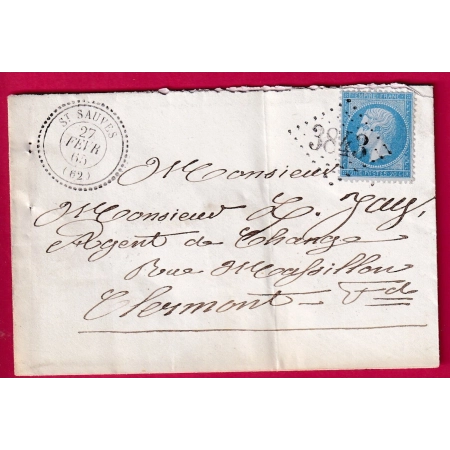 ST SAUVES
27
FEVR
65
(62)
EMPIRE FRANC
3843
Monsieur
Monsieur L. Jay,
Agent de Change
Rue Massillon
Clermont-Fd